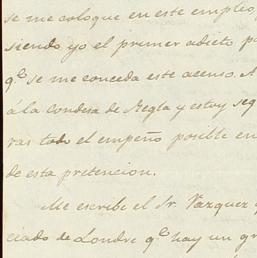 se me coloque en este empleo,
siendo yo el primer adicto pa
qᵉ se me conceda este acenso. A
á la condesa de Regla y estoy seg
ras todo el empeño posible en
de esta pretencion.
Me escribe el Sr. Vazquez
ciado de Londre qᵉ hay un gr